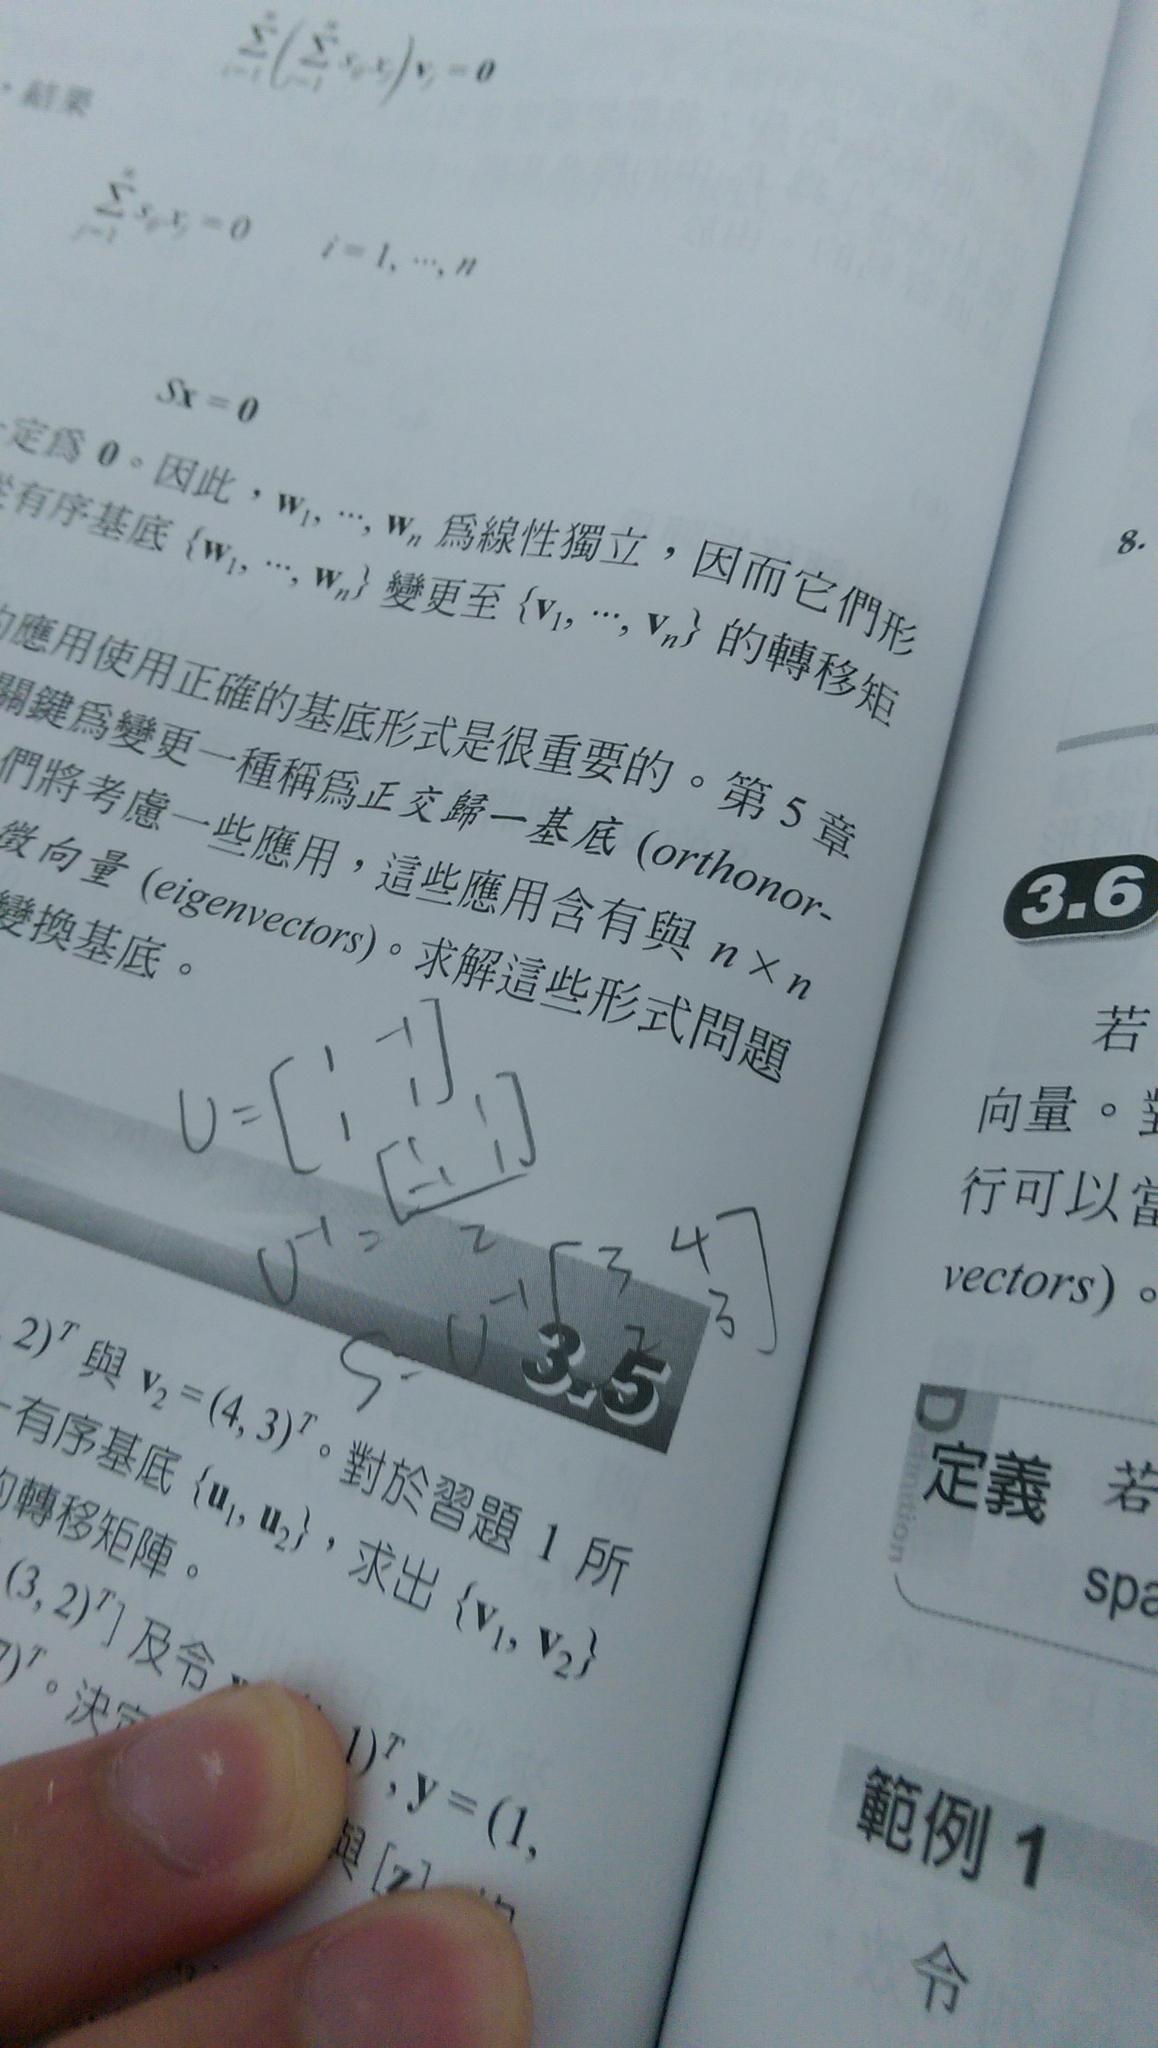 ，結果
Sx = 0
定為 0。因此，w1, ···, wn 為線性獨立，因而它們形
有序基底 {w1, ···, wn} 變更至 {v1, ···, vn} 的轉移矩
的應用使用正確的基底形式是很重要的。第 5 章
關鍵為變更一種稱為正交歸一基底 (orthonor-
們將考慮一些應用，這些應用含有與 n × n
徵向量 (eigenvectors)。求解這些形式問題
變換基底。
U = [1 -1
1 1]
U⁻¹ = [1 1
-1 1]
2
U⁻¹ [3 4
2 3]
3.5
, 2)ᵀ 與 v2 = (4, 3)ᵀ。對於習題 1 所
有序基底 {u1, u2}，求出 {v1, v2}
的轉移矩陣。
(3, 2)ᵀ] 及令
1)ᵀ, y = (1,
7)ᵀ。決定
與 [z]
8.
3.6
若
向量。
行可以當
vectors)。
Definition
定義 若
spa
範例 1
令